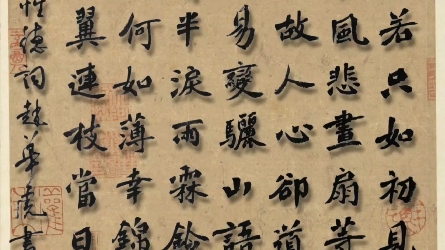 若只如初見
風悲畫扇等
故人心卻道
易變驪山語
半淚雨霖鈴
何如薄幸錦
翼連枝當日
性德詞 書